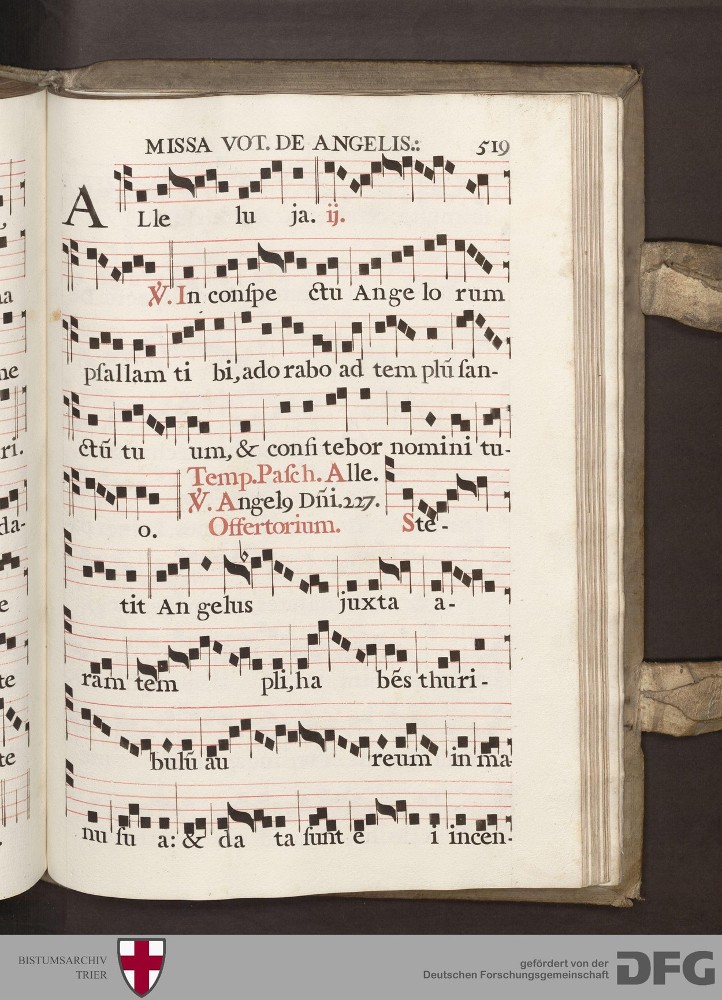 MISSA VOT. DE ANGELIS:. 519
A Lle lu ja. ij.
℣. In conſpe ctu Ange lo rum
pſallam ti bi, ado rabo ad tem plū ſan-
ctū tu um, & confi tebor nomini tu-
o. Temp. Paſch. Alle.
℣. Angelꝰ Dñi. 227.
Offertorium. Ste-
tit An gelus juxta a-
ram tem pli, ha bēs thuri-
bulū au reum in ma-
nu ſu a: & da ta ſunt e i incen-
BISTUMSARCHIV
TRIER
gefördert von der
Deutschen Forschungsgemeinschaft
DFG